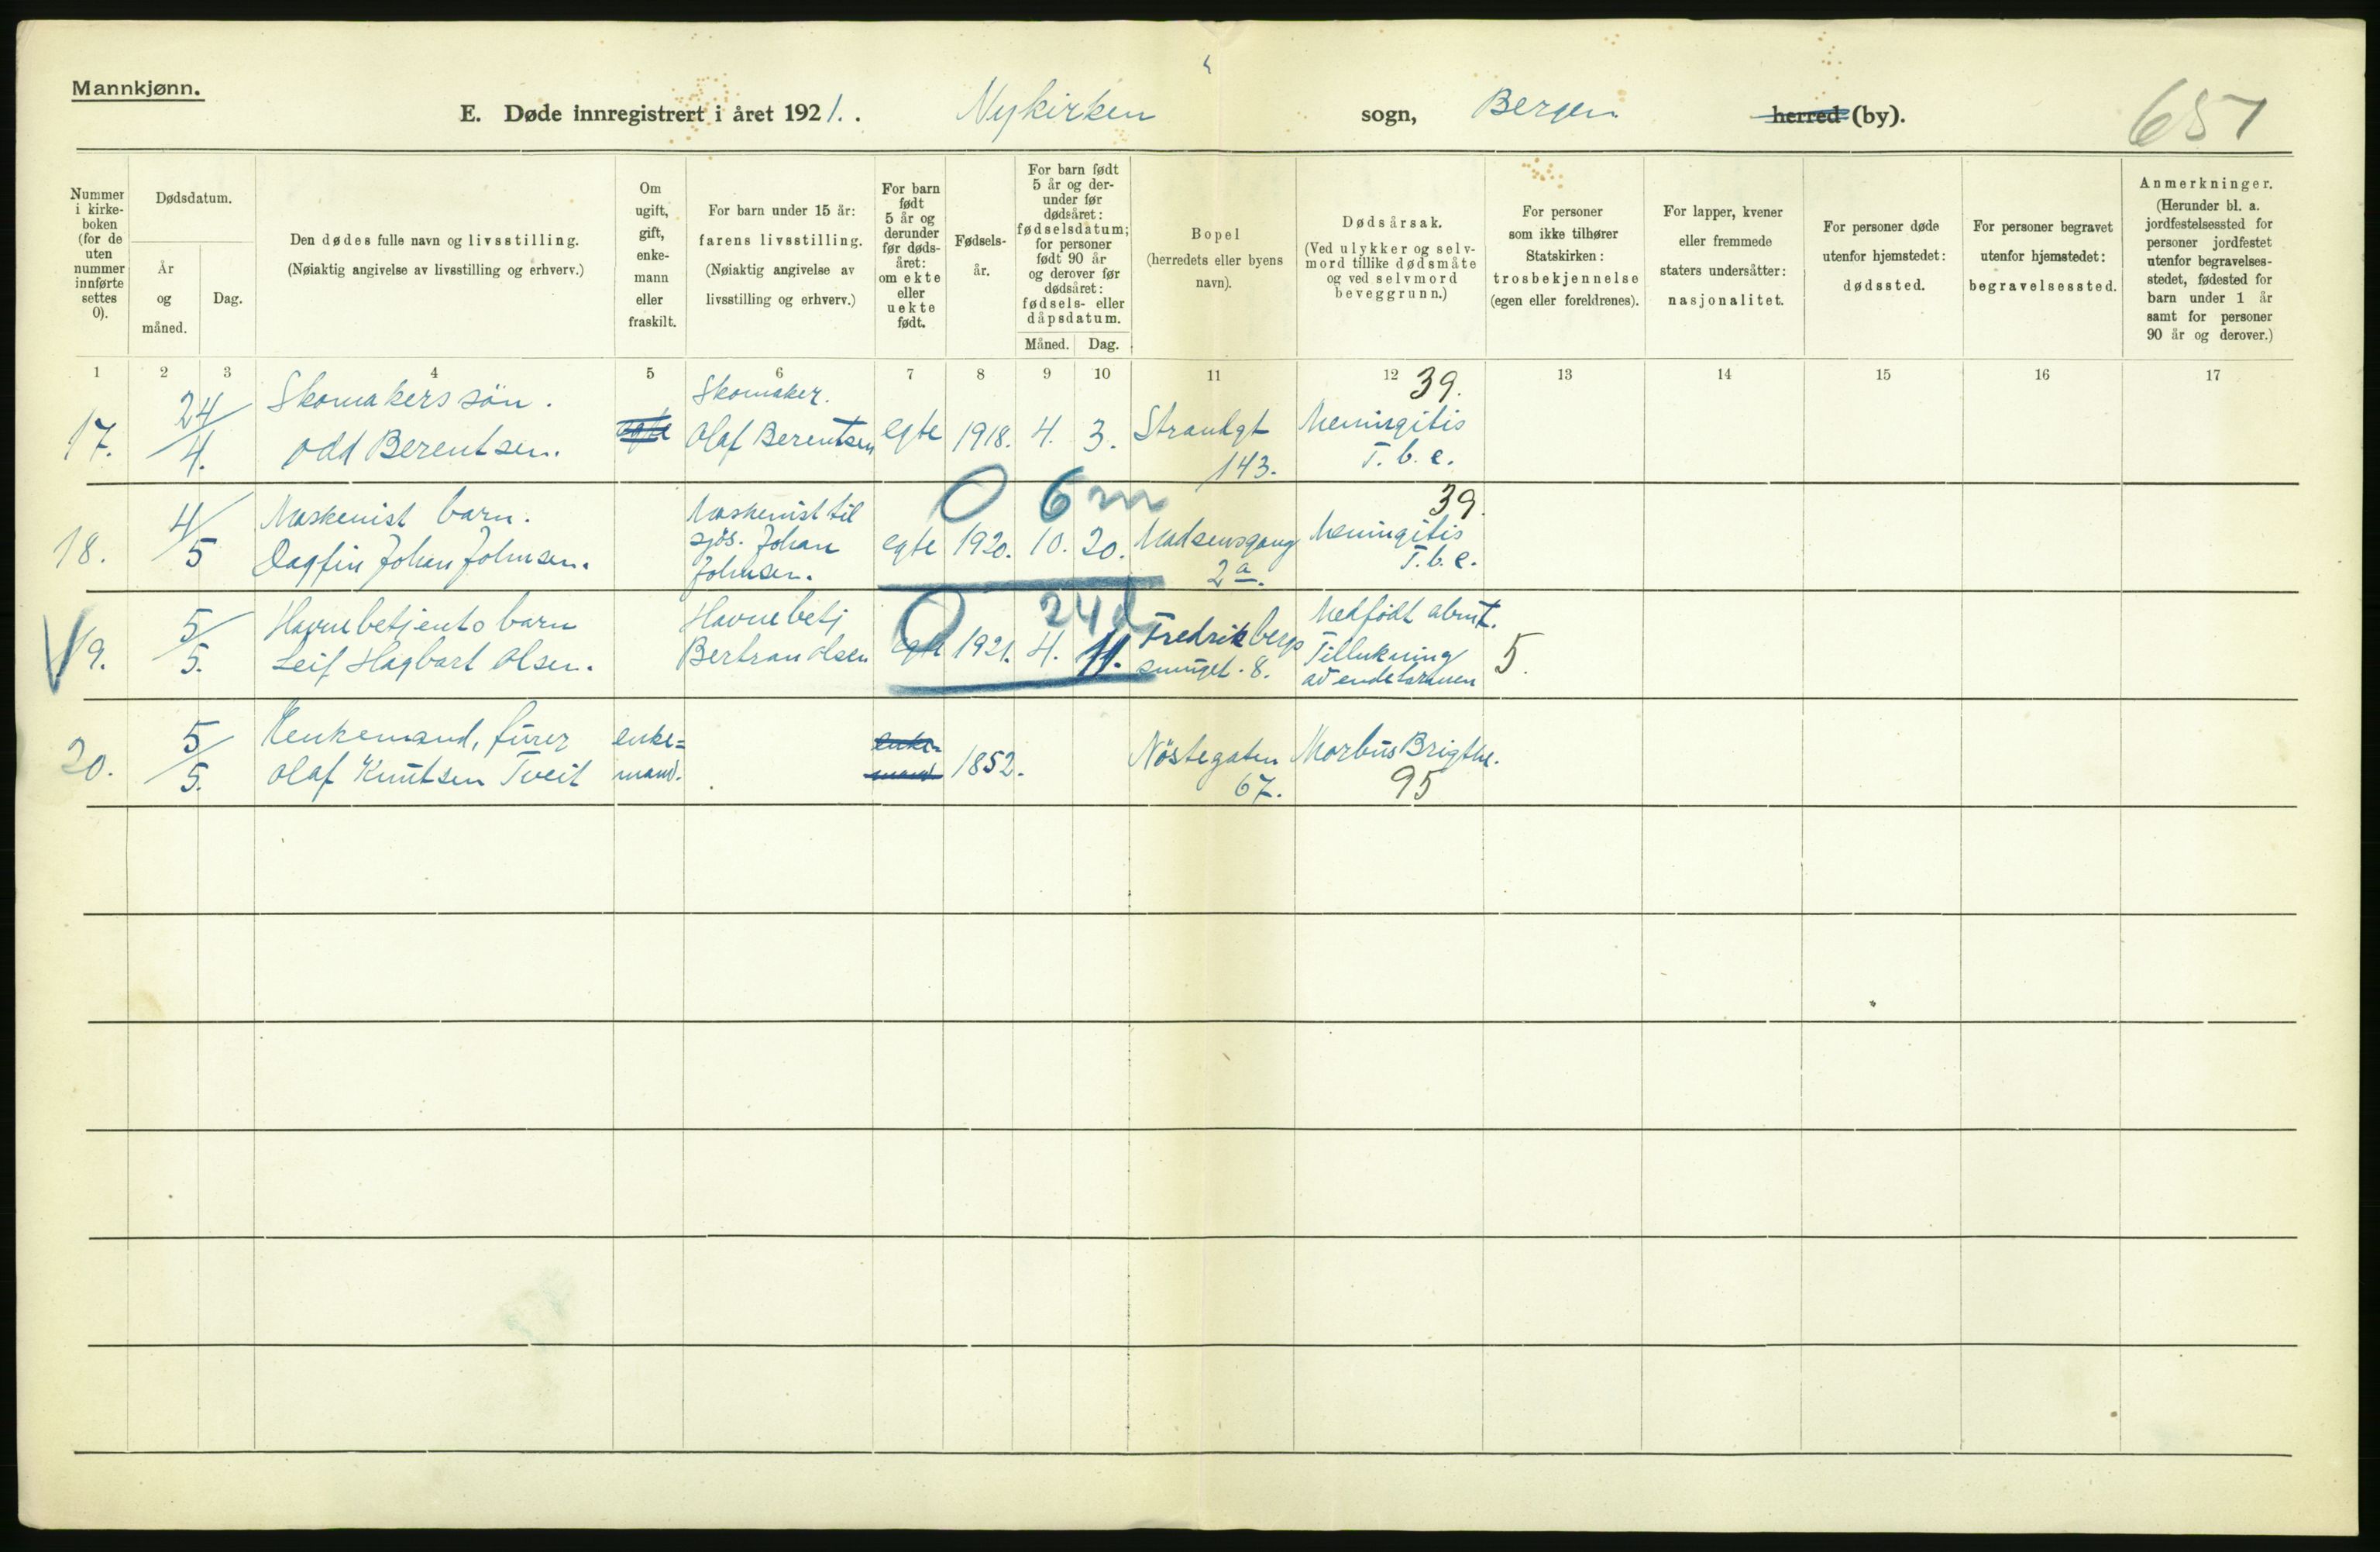 Mannkjønn.
E. Døde innregistrert i året 1921. . Nykirken sogn, Bergen herred (by).
651
Nummer i kirke-boken (for de uten nummer innførte settes 0).
Dødsdatum.
År og måned.
Dag.
Den dødes fulle navn og livsstilling.
(Nøiaktig angivelse av livsstilling og erhverv.)
Om ugift, gift, enke-mann eller fraskilt.
For barn under 15 år:
farens livsstilling.
(Nøiaktig angivelse av livsstilling og erhverv.)
For barn født 5 år og derunder før døds-året: om ekte eller uekte født.
Fødsels-år.
For barn født 5 år og der-under før dødsåret: fødselsdatum; for personer født 90 år og derover før dødsåret: fødsels- eller dåpsdatum.
Måned. Dag.
Bopel
(herredets eller byens navn).
Dødsårsak.
(Ved ulykker og selv-mord tillike dødsmåte og ved selvmord beveggrunn.)
For personer som ikke tilhører Statskirken: trosbekjennelse (egen eller foreldrenes).
For lapper, kvener eller fremmede staters undersåtter: nasjonalitet.
For personer døde utenfor hjemstedet: dødssted.
For personer begravet utenfor hjemstedet: begravelsessted.
Anmerkninger.
(Herunder bl. a. jordfestelsessted for personer jordfestet utenfor begravelses-stedet, fødested for barn under 1 år samt for personer 90 år og derover.)
1 2 3 4 5 6 7 8 9 10 11 12 13 14 15 16 17
39.
17. 24/4. Skomakers søn. Odd Berentsen. egte Skomaker. Olaf Berentsen egte 1918. 4. 3. Strandgt 143. Meningitis T. b. c.
0 6 m 39.
18. 4/5 Maskenist barn. Dagfin Johan Johnsen. Maskenist til sjøs. Johan Johnsen. egte 1920. 10. 20. Madsensgang 2a. Meningitis T. b. c.
0 24 d
19. 5/5. Havnebetjents barn Leif Hagbart Olsen. Havnebetj Bertran Olsen egte 1921. 4. 11. Fredrikbergs smuget. 8. Medfødt Tillukning av endetarmen 5.
20. 5/5. Enkemand, fürer Olaf Knutsen Tveit enke=mand. enke-mand 1852. Nöstegaten 67. Morbus Brigthi. 95